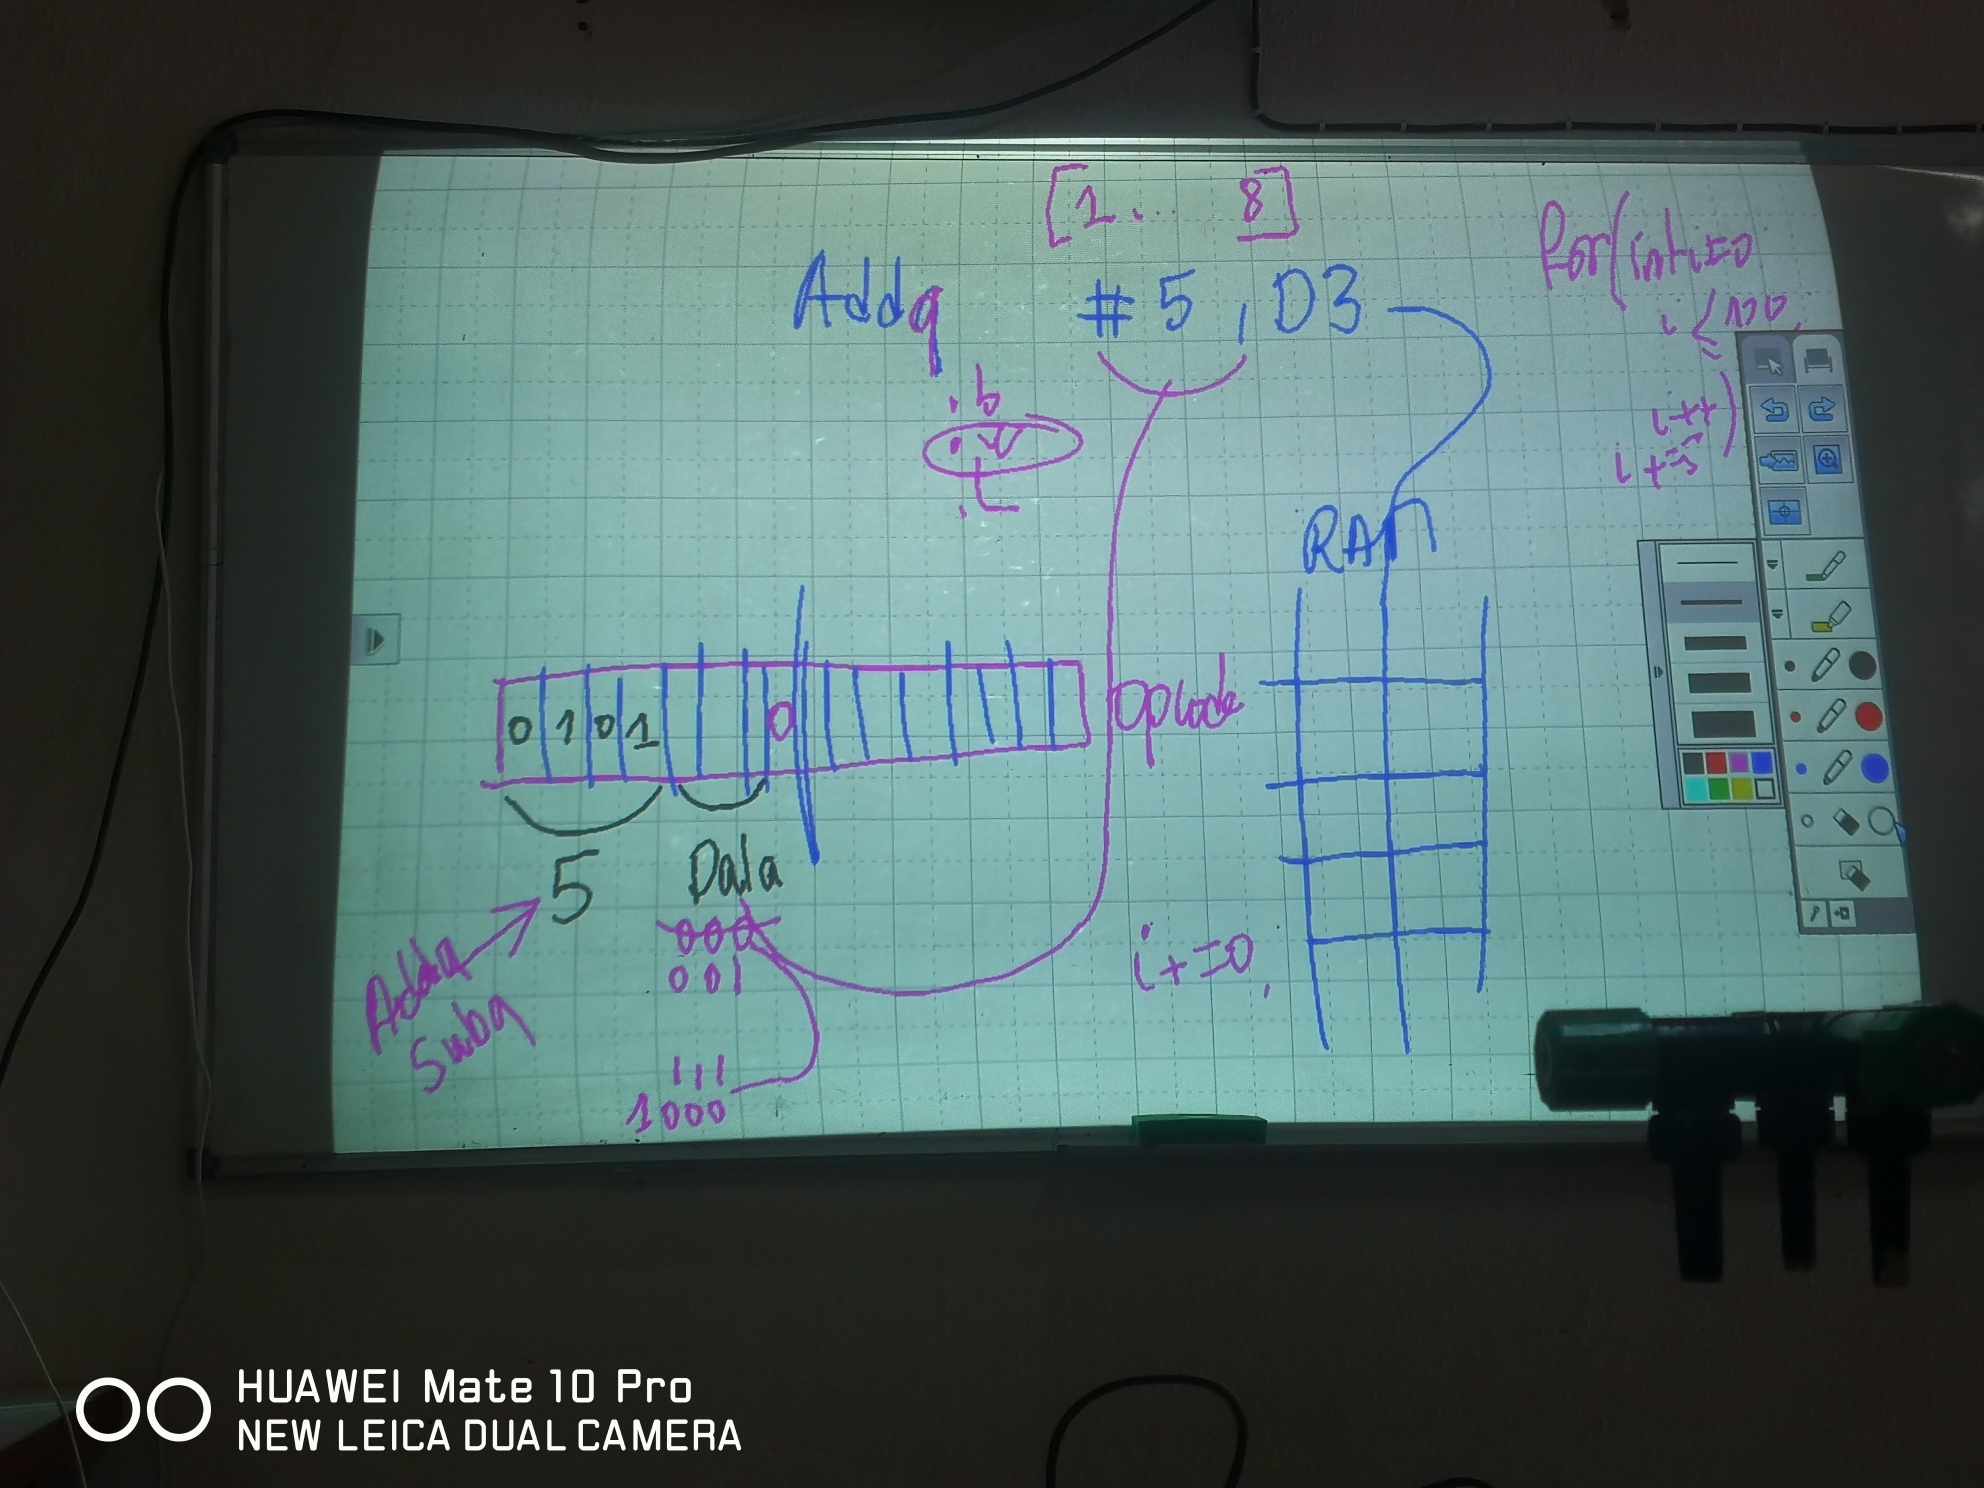 [1... 8]
Addq #5, D3
.b
.w
.L
for(int i=0
i<100,
i++)
i+=5
RAM
0 1 0 1 0
Opcode
5 Data
000
001
111
1000
Addq
Subq
i+=0,
HUAWEI Mate 10 Pro
NEW LEICA DUAL CAMERA